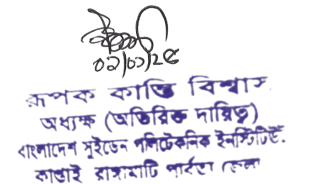 ০১/০১/২৫
রূপক কান্তি বিশ্বাস
অধ্যক্ষ (অতিরিক্ত দায়িত্ব)
বাংলাদেশ সুইডেন পলিটেকনিক ইনস্টিটিউট.
কাপ্তাই রাঙ্গামাটি পার্বত্য জেলা